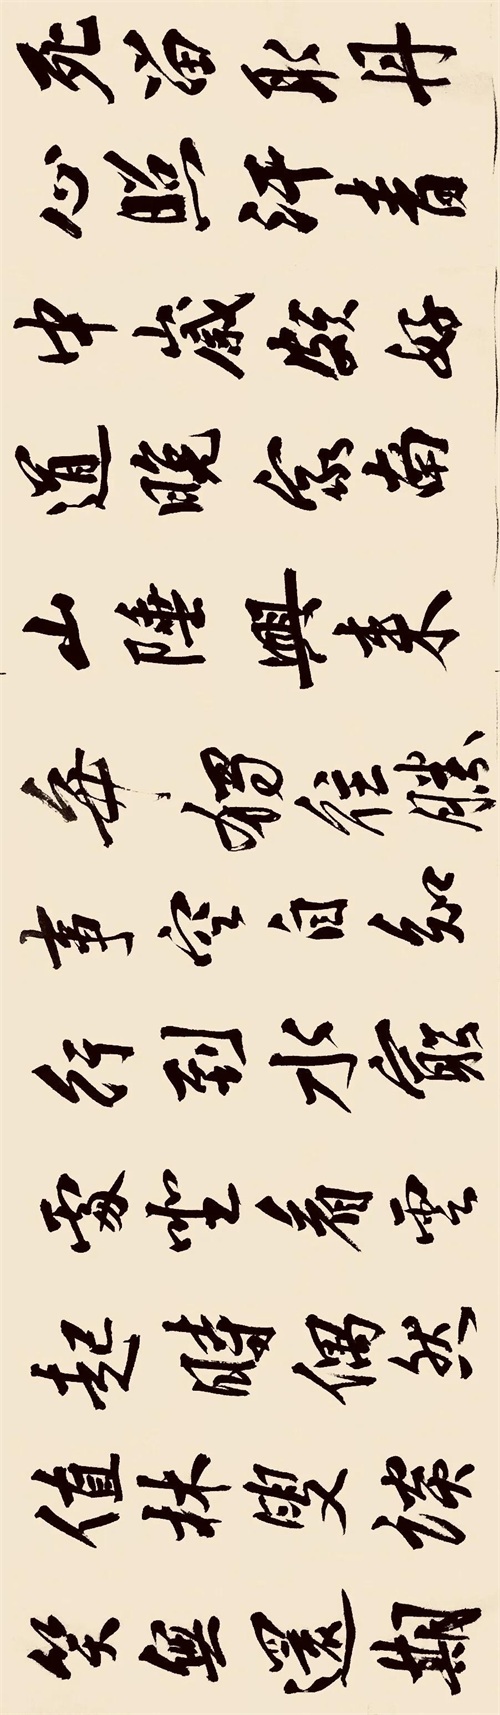 死留取丹
心照汗青
中歲頗好
道晚家南
山陲興來
每獨往勝
事空自知
行到水窮
處坐看雲
起時偶然
值林叟談
笑無還期